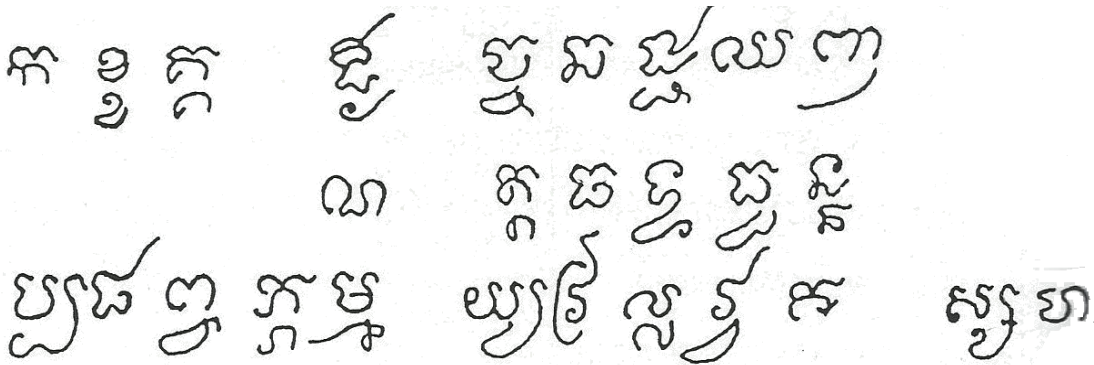 ក ខ្ខ គ្គ ង្ង ច្ច ឆ ជ្ជ ឈ ញ
ណ ត្ត ថ ទ្ទ ធ្ធ ន្ន
ប្ប ផ ព្ព ភ្ភ ម្ម យ្យ រ្រ ល្ល វ្វ ឝ ស្ស ហ